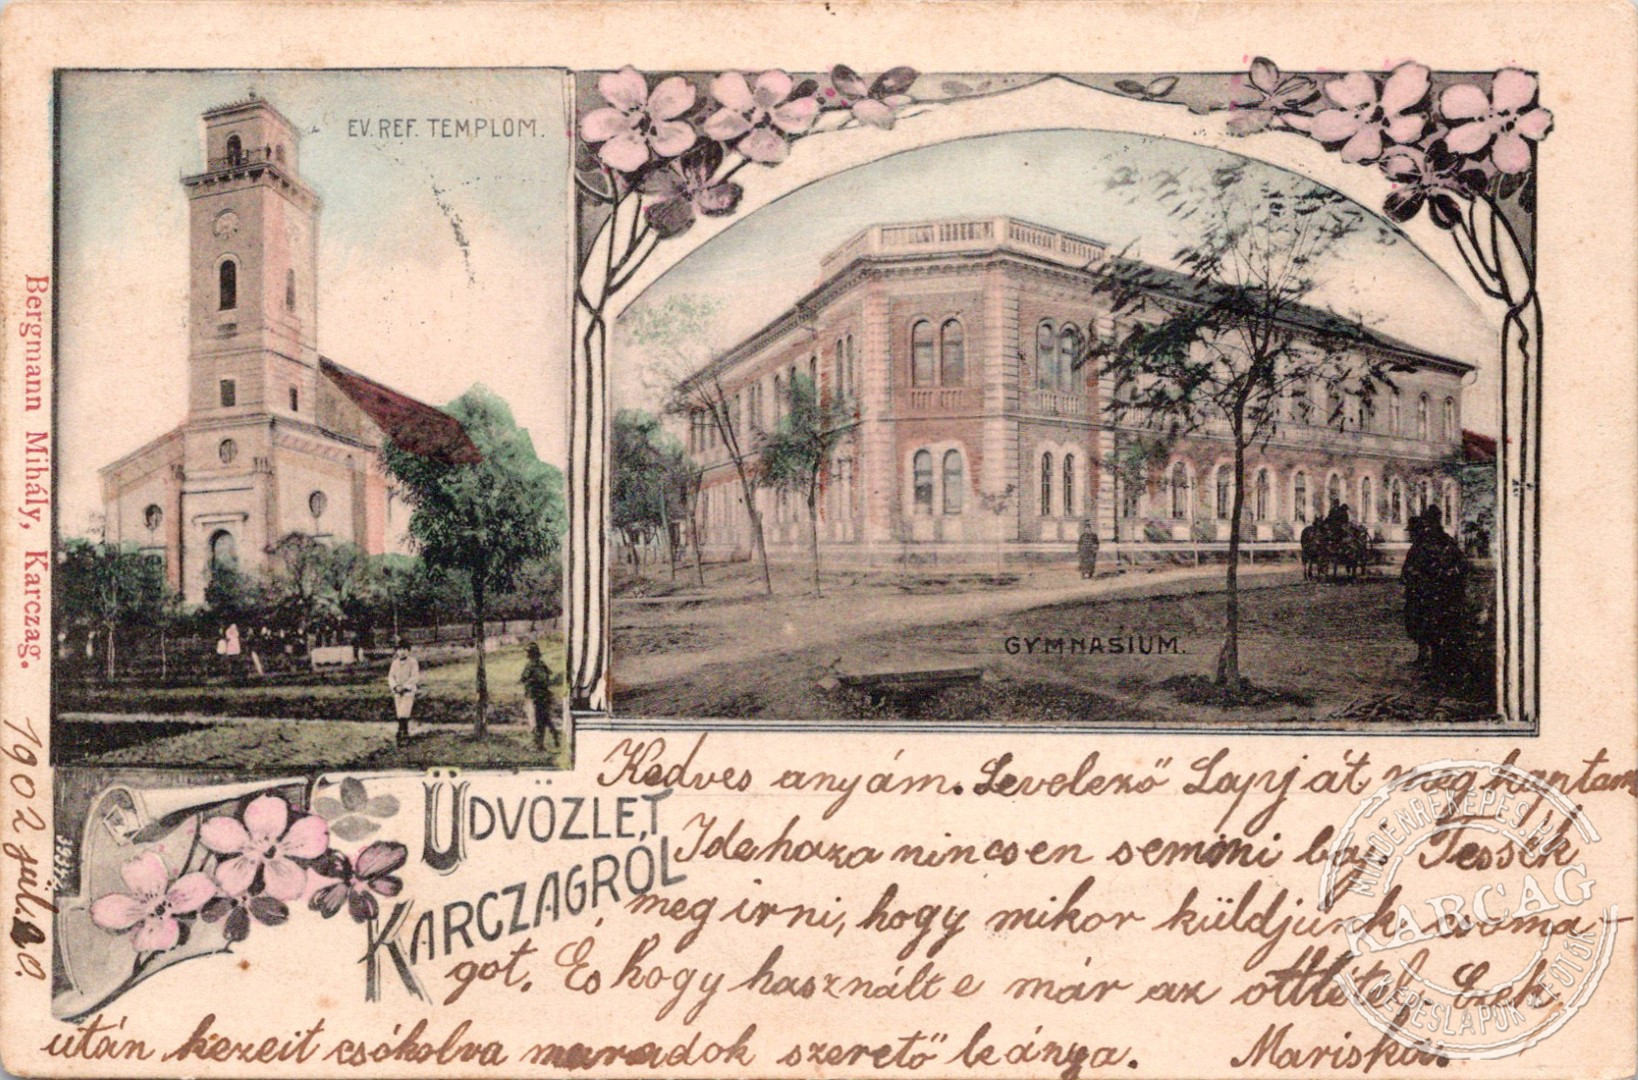 EV. REF. TEMPLOM.
GYMNASIUM.
Bergmann Mihály, Karczag.
1902 júl.
ÜDVÖZLET
KARCZAGRÓL
Kedves anyám. Levelező Lapját meg kaptam
Idehaza nincsen semmi baj. Tessék
meg irni, hogy mikor küldjünk csoma-
got. És hogy használt e már az ottlétel. Ezek
után kezeit csókolva maradok szerető leánya. Mariska.
MINDENREKEPES.HU
KARCAG
KÉPESLAPOK